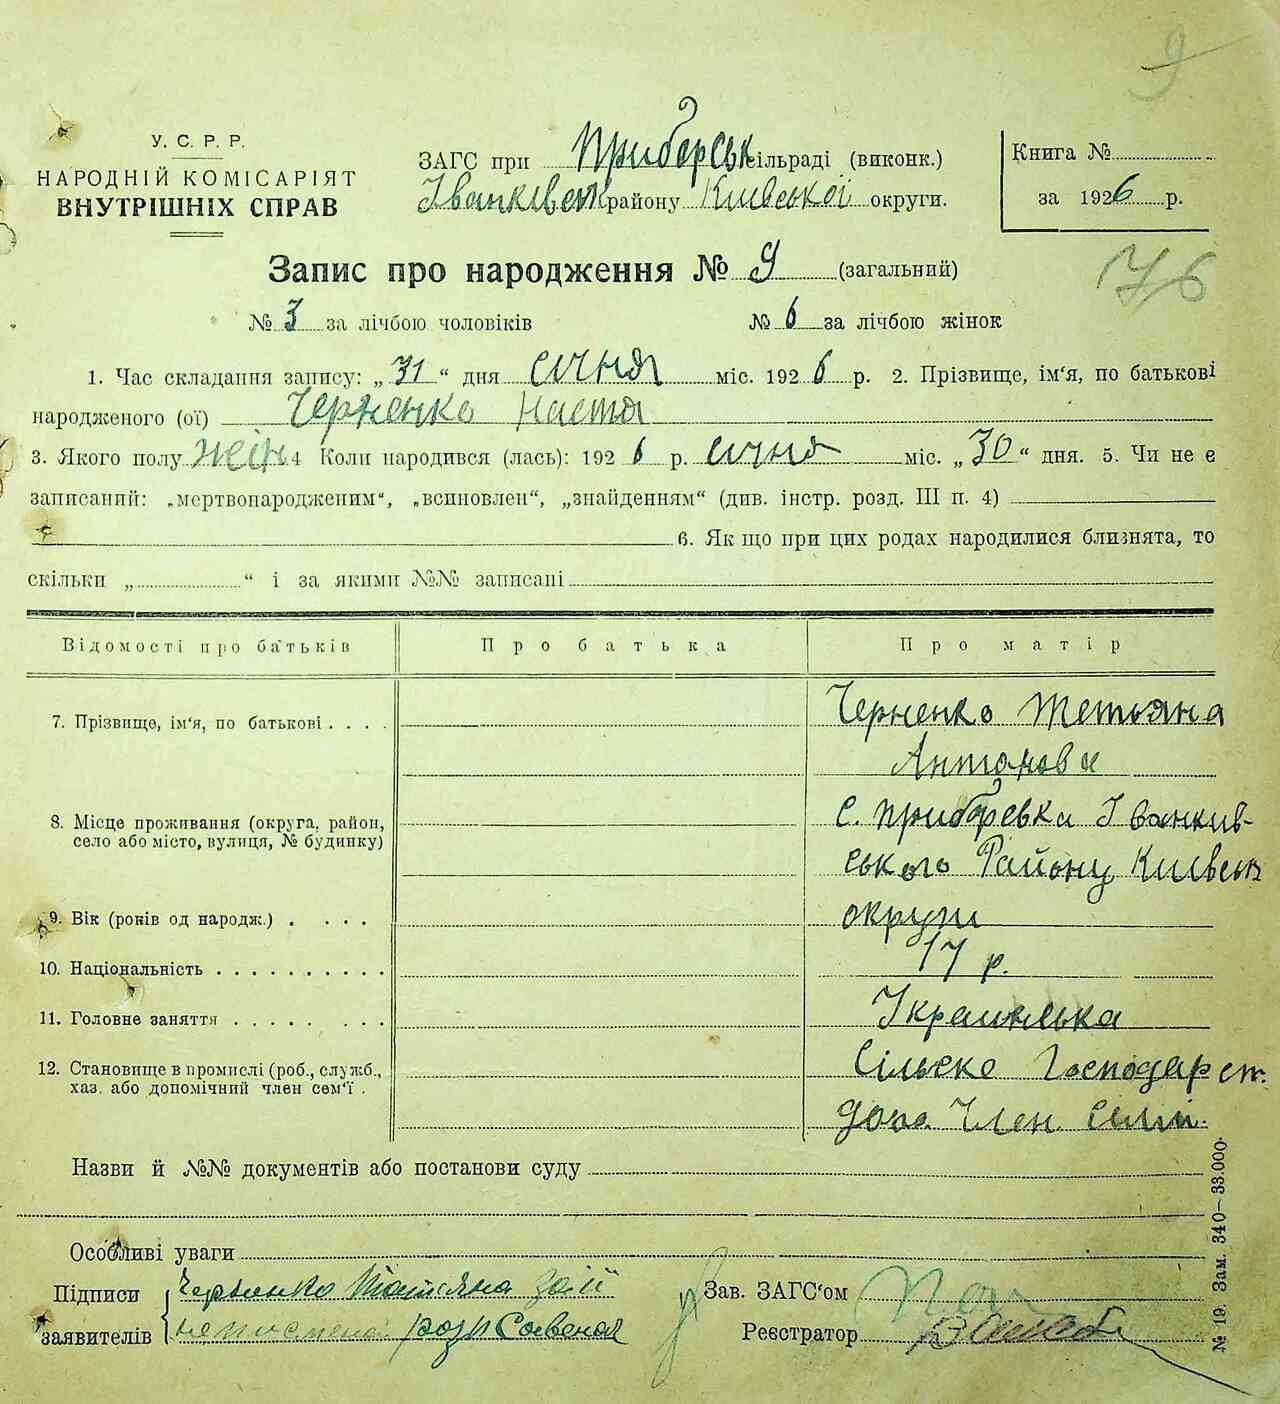 9
У. С. Р. Р.
НАРОДНІЙ КОМІСАРІЯТ
ВНУТРІШНІХ СПРАВ
ЗАГС при Приборськ сільраді (виконк.)
Іванківськ району Київської округи.
Книга №
за 1926 р.
Запис про народження № 9 (загальний)
76
№ 3 за лічбою чоловіків № 6 за лічбою жінок
1. Час складання запису: „31“ дня січня міс. 1926 р. 2. Прізвище, ім'я, по батькові
народженого (ої) Черненко Настя
3. Якого полу жін 4 Коли народився (лась): 1926 р. січня міс. „30“ дня. 5. Чи не є
записаний: „мертвонародженим“, „всиновлен“, „знайденням“ (див. інстр. розд. III п. 4)
6. Як що при цих родах народилися близнята, то
скільки „ “ і за якими №№ записані
Відомості про батьків Про батька Про матір
7. Прізвище, ім'я, по батькові . . . . Черненко Тетьяна
Антонова
8. Місце проживання (округа, район, с. Приборська Іванкив-
село або місто, вулиця, № будинку) ського Району Київськ
9. Вік (років од народж.) . . . . округи
10. Національність . . . . . . . . . . 17 р.
11. Головне заняття . . . . . . . . Украинська
12. Становище в промислі (роб., служб., Сільське Господарст.
хаз. або допомічний член сем'ї . допо. Член. семі.
Назви й №№ документів або постанови суду
Особливі уваги
Підписи Черненко Татіяна
заявителів
Зав. ЗАГС'ом
Реєстратор
№ 19. Зам. 340—33.000.